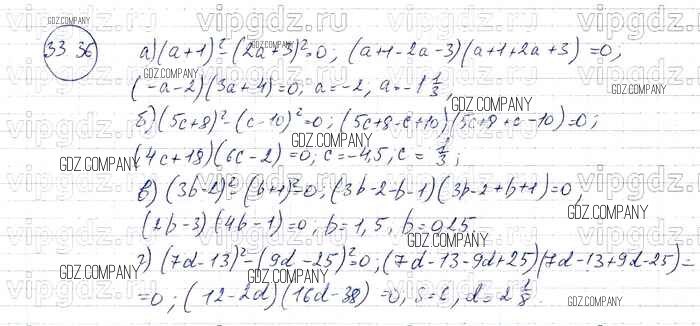 33 36
а) (a+1)²-(2a+3)²=0; (a+1-2a-3)(a+1+2a+3)=0;
(-a-2)(3a+4)=0; a=-2, a=-1 1/3;
б) (5c+8)²-(c-10)²=0; (5c+8-c+10)(5c+8+c-10)=0;
(4c+18)(6c-2)=0; c=-4,5, c=1/3;
в) (3b-2)²-(b+1)²=0; (3b-2-b-1)(3b-2+b+1)=0,
(2b-3)(4b-1)=0; b=1,5, b=0,25.
г) (7d-13)²-(9d-25)²=0; (7d-13-9d+25)(7d-13+9d-25)=
=0; (12-2d)(16d-38)=0, s=6, d=2 1/8.
GDZ.COMPANY
GDZ.COMPANY
GDZ.COMPANY
GDZ.COMPANY
GDZ.COMPANY
GDZ.COMPANY
GDZ.COMPANY
GDZ.COMPANY
GDZ.COMPANY
GDZ.COMPANY
GDZ.COMPANY
GDZ.COMPANY
vipgdz.ru